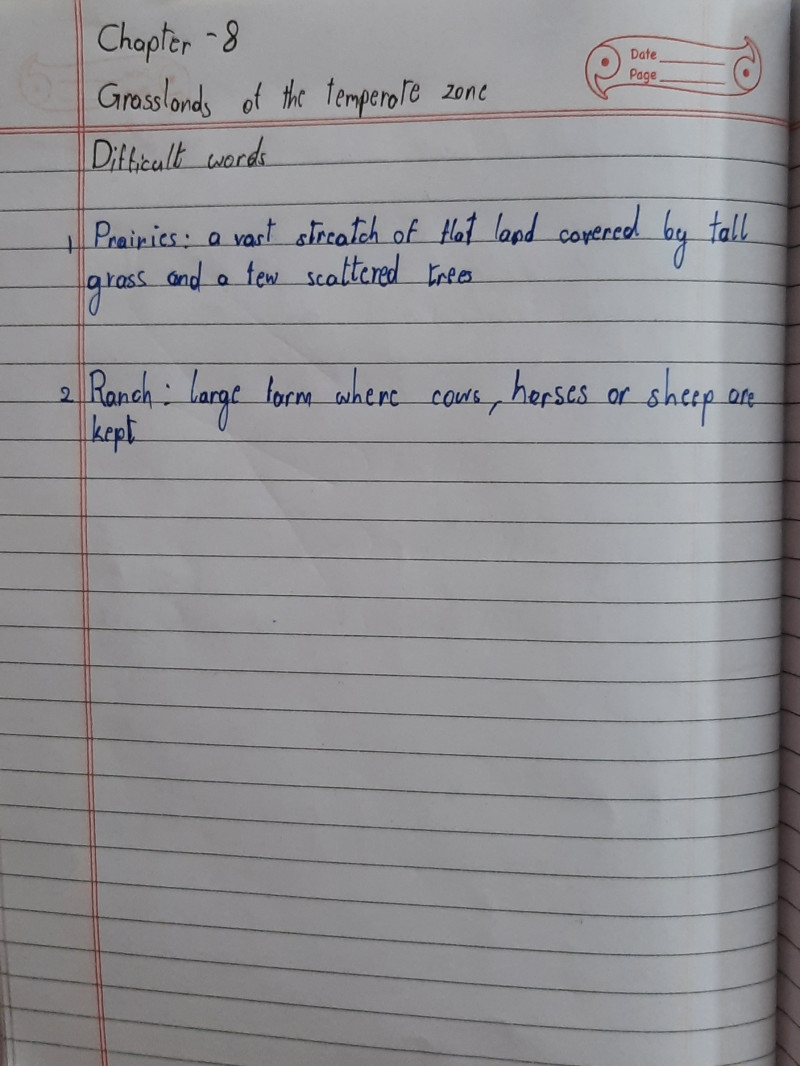 Chapter - 8
Date
Page
Grasslands of the temperate zone
Difficult words
1 Prairies: a vast streatch of flat land covered by tall
grass and a few scattered trees
2 Ranch: large farm where cows, horses or sheep are
kept